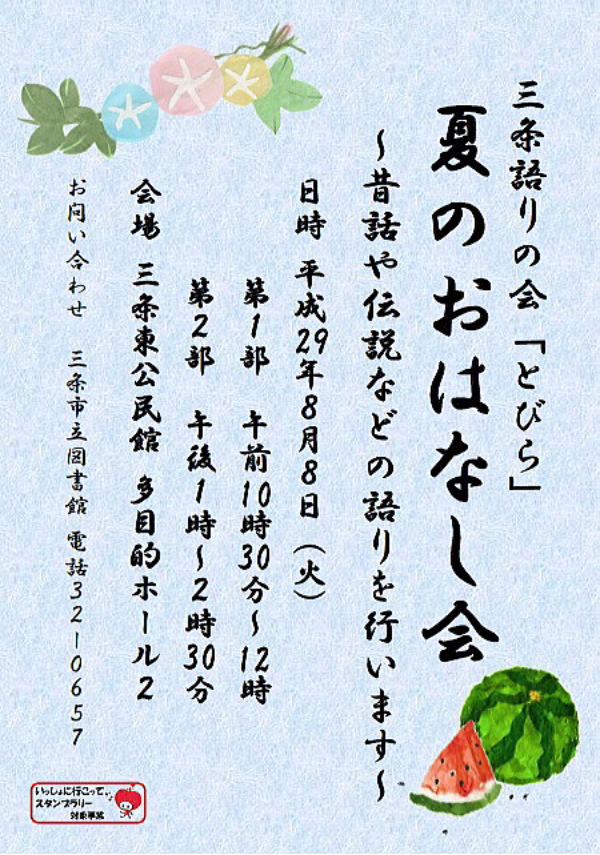 三条語りの会「とびら」
夏のおはなし会
～昔話や伝説などの語りを行います～
日時 平成29年8月8日（火）
第1部 午前10時30分～12時
第2部 午後1時～2時30分
会場 三条東公民館 多目的ホール2
お問い合わせ 三条市立図書館 電話32-0657
いっしょに行こって。
スタンプラリー
対象事業